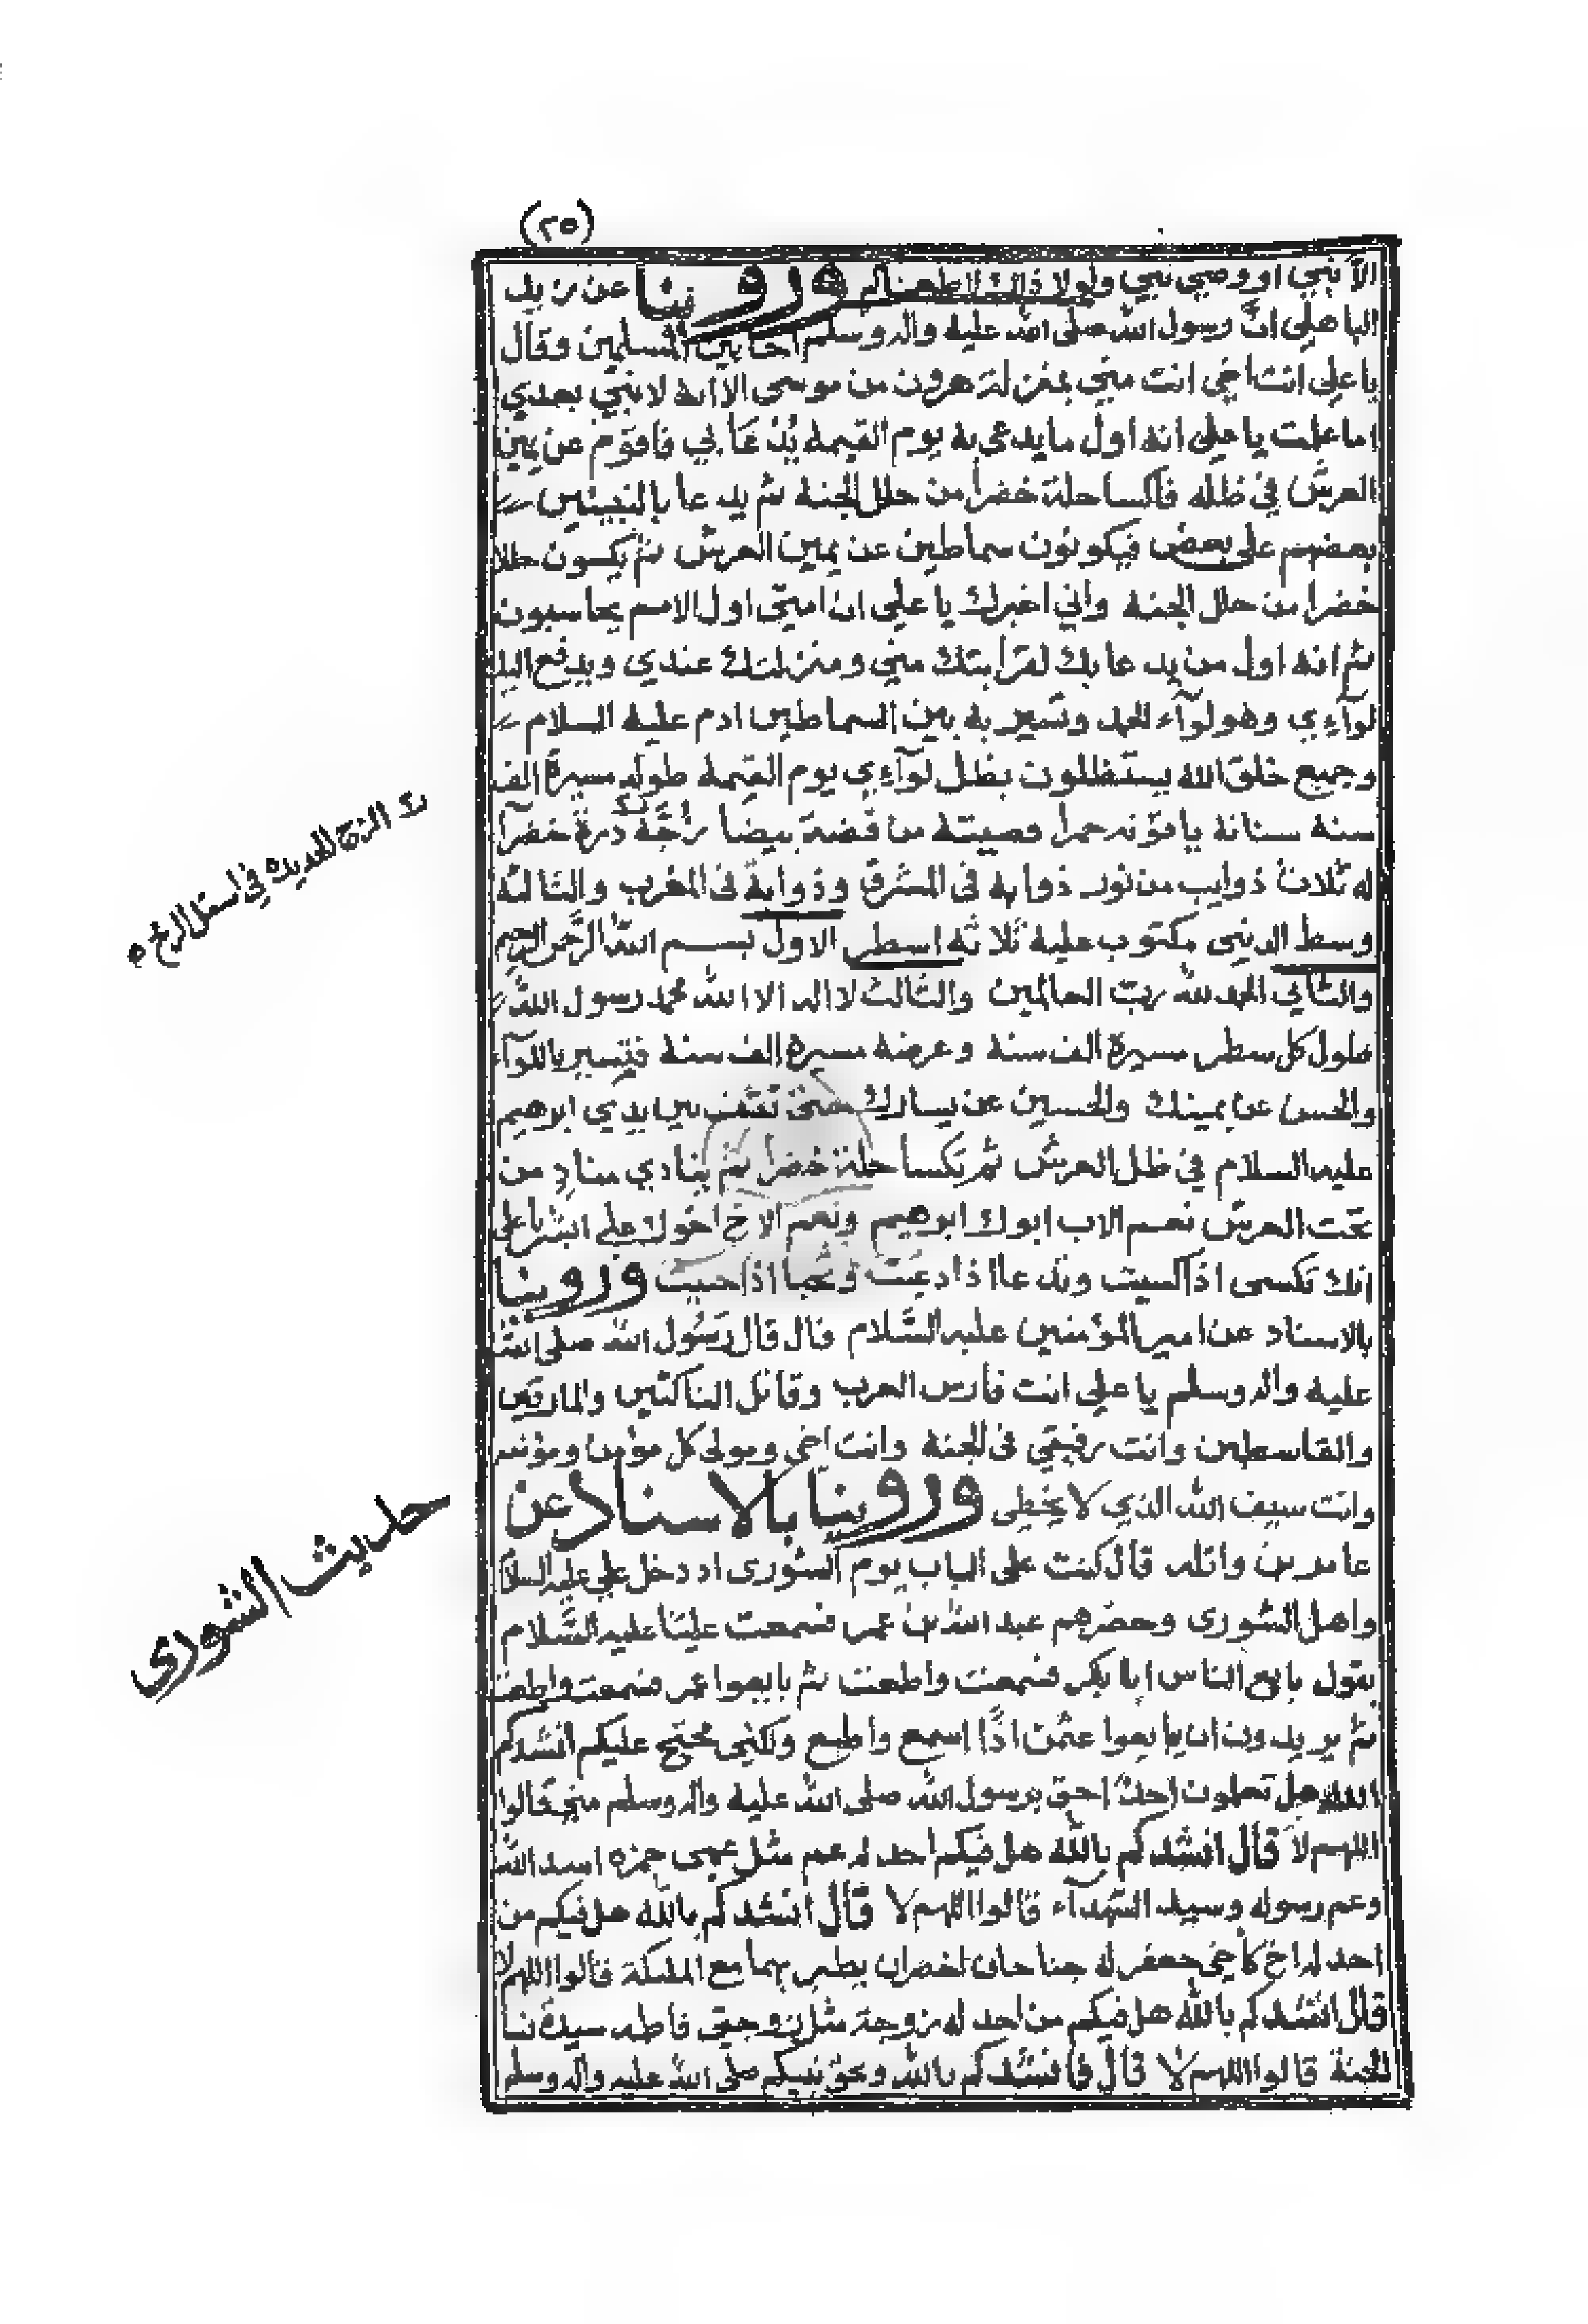 (٢٥)
الا نبي او وصي نبي ولولا ذالك لاطعنا لم وروينا عن زيد
الباهلي ان رسول الله صلى الله عليه واله وسلم اخا بين المسلمين وقال
يا علي انت اخي انت مني بمنزلة هرون من موسى الا انه لا نبي بعدي
اما علمت يا علي انه اول ما يدعى به يوم القيمة يُدْعَا بي فاقوم عن يمين
العرش في ظله فاكسا حلة خضرا من حلل الجنة ثم يدعا بالنبيين
بعضهم على بعض فيكونون سماطين عن يمين العرش ثم يكسون حللا
خضرا من حلل الجنة واني اخبرك يا علي ان امتي اول الامم يحاسبون
ثم انه اول من يدعا بك لقرابتك مني ومنزلتك عندي ويدفع اليك
لوآءي وهو لوآء الحمد وتسير به بين السماطين ادم عليه السلام
وجميع خلق الله يستظلون بظل لوآءي يوم القيمة طوله مسيرة الف
سنة سنانه ياقوته حمرا قصبته من فضة بيضا زجّه درة خضرآ
له ثلاث ذوايب من نور ذوابه في المشرق وذوابة في المغرب والثالثة
وسط الدنيى مكتوب عليه ثلاثه اسطر الاول بسم الله الرحمن الرحيم
والثاني الحمد لله رب العالمين والثالث لا اله الا الله محمد رسول الله
طول كل سطر مسيرة الف سنة وعرضه مسيرة الف سنة فتسير باللوآء
والحسن عن يمينك والحسين عن يسارك حتى تقف بين ايدي ابرهيم
عليه السلام في ظل العرش ثم تكسا حلة خضرا ثم ينادي مناد من
تحت العرش نعم الاب ابوك ابرهيم ونعم الاخ اخوك علي ابشر يا علي
انك تكسى اذا كسيت وتدعا اذا دعيت وتحيا اذا حييت وروينا
بالاسناد عن امير المؤمنين عليه السلام قال قال رسول الله صلى الله
عليه واله وسلم يا علي انت فارس العرب وقاتل الناكثين والمارقين
والقاسطين وانت رفيقي في الجنة وانت اخي ومولى كل مؤمن ومؤمنه
وانت سيف الله الذي لا يخطي وروينا بالاسناد عن
عامر بن واثله قال كنت على الباب يوم الشورى اذ دخل علي عليه السلا
واهل الشورى وحضرهم عبد الله بن عمر فسمعت عليا عليه السلام
يقول بايع الناس ابا بكر فسمعت واطعت ثم بايعوا عمر فسمعت واطعت
ثم يريدون ان يبايعوا عثمن اذًا اسمع واطيع ولكني محتج عليكم انشدكم
الله هل تعلمون احدًا احق برسول الله صلى الله عليه واله وسلم مني قالوا
اللهم لا قال انشدكم بالله هل فيكم احد له عم مثل عمي حمزه اسد الله
وعم رسوله وسيد الشهدآء قالوا اللهم لا قال انشدكم بالله هل فيكم من
احد له اخ كأخي جعفر له جناحان اخضران يطير بهما مع الملئكة قالوا اللهم لا
قال انشدكم بالله هل فيكم من احد له زوجة مثل زوجتي فاطمه سيدة نسا
الجنة قالوا اللهم لا قال فانشدكم بالله وبحق نبيكم صلى الله عليه واله وسلم
الزج الحديده في اسفل الرمح
حديث الشورى